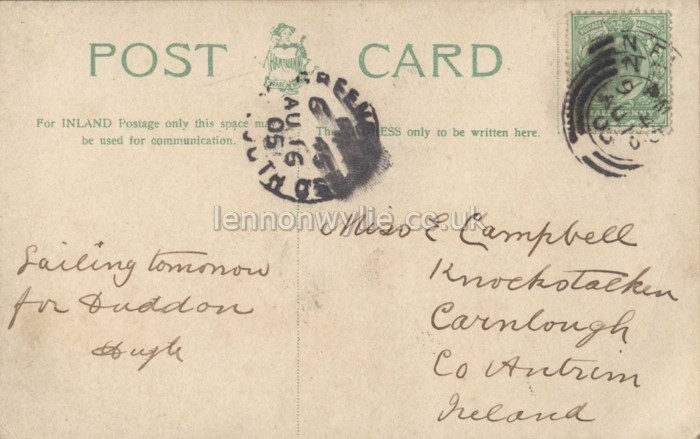 POST CARD
HARTMANN
For INLAND Postage only this space may
be used for communication.
The ADDRESS only to be written here.
AU 16
05
HALFPENNY
lennonwylie.co.uk
Sailing tomorrow
for Duddon
Hugh
Miss E Campbell
Knockstalken
Carnlough
Co Antrim
Ireland